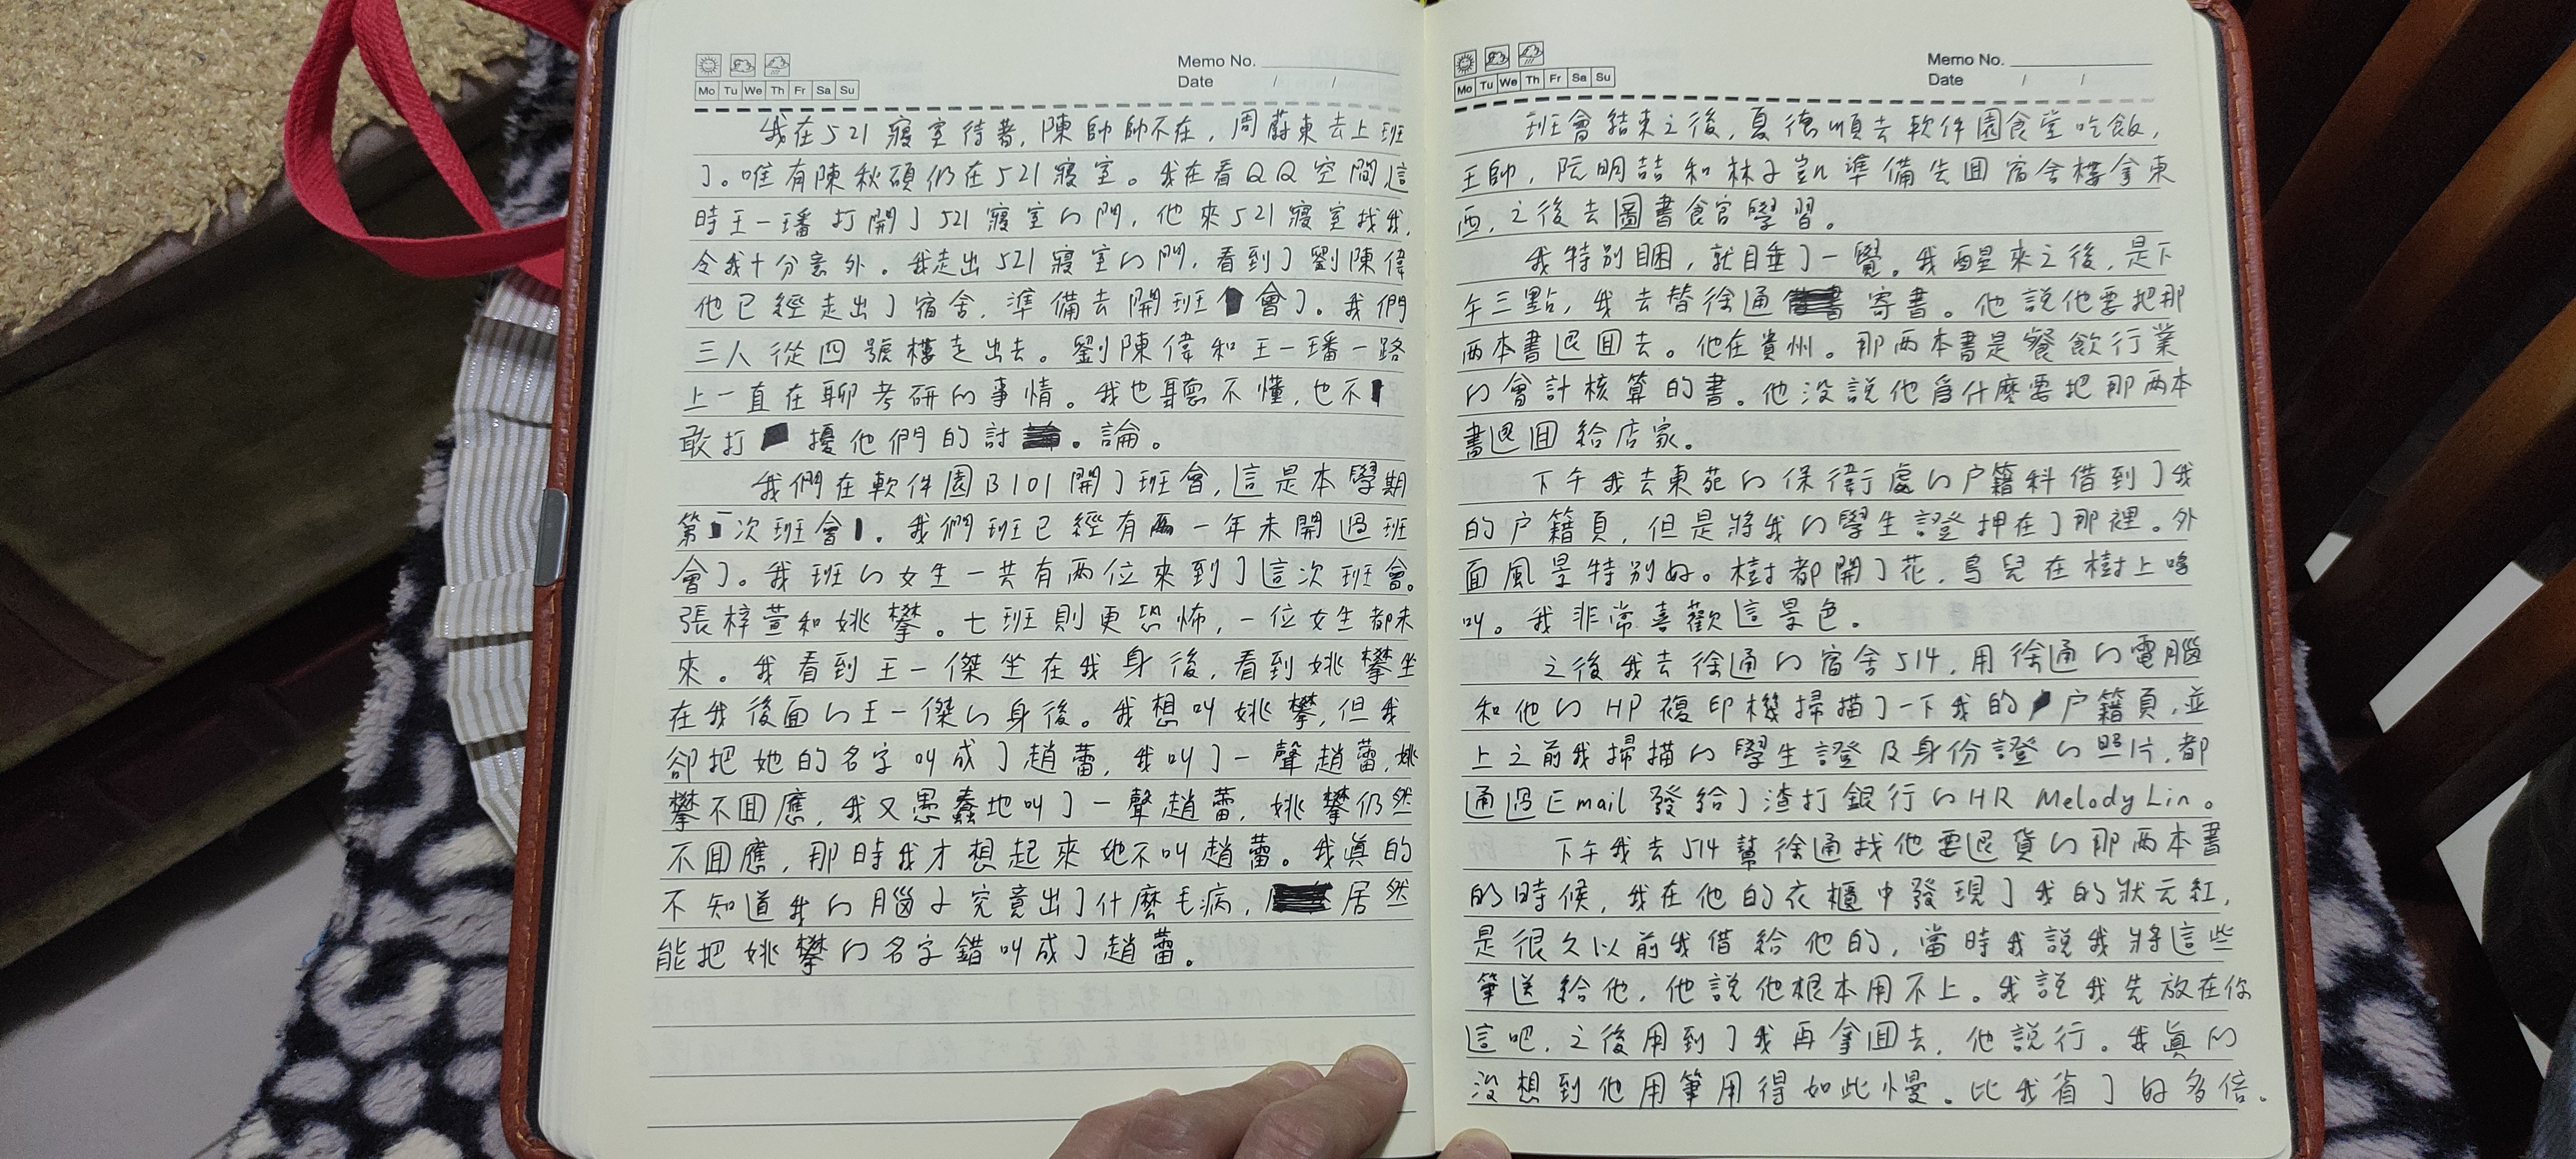 Memo No.
Date / /
Mo Tu We Th Fr Sa Su
我在521寢室待著,陳帥帥不在,周蔚東去上班
了。唯有陳秋碩仍在521寢室。我在看QQ空間這
時王一璠打開了521寢室的門,他來521寢室找我,
令我十分意外。我走出521寢室的門,看到了劉陳偉
他已經走出了宿舍,準備去開班會了。我們
三人從四號樓走出去。劉陳偉和王一璠一路
上一直在聊考研的事情。我也聽不懂,也不
敢打擾他們的討。論。
我們在軟件園B101開了班會,這是本學期
第一次班會。我們班已經有一年未開過班
會了。我班的女生一共有兩位來到了這次班會。
張梓萱和姚攀。七班則更恐怖,一位女生都未
來。我看到王一傑坐在我身後,看到姚攀坐
在我後面的王一傑的身後。我想叫姚攀,但我
卻把她的名字叫成了趙蕾,我叫了一聲趙蕾,姚
攀不回應,我又愚蠢地叫了一聲趙蕾,姚攀仍然
不回應,那時我才想起來她不叫趙蕾。我真的
不知道我的腦子究竟出了什麼毛病,居然
能把姚攀的名字錯叫成了趙蕾。
Memo No.
Date / /
Mo Tu We Th Fr Sa Su
班會結束之後,夏德順去軟件園食堂吃飯,
王帥,阮明喆和林子凱準備先回宿舍樓拿東
西,之後去圖書館學習。
我特別困,就睡了一覺。我醒來之後,是下
午三點,我去替徐通寄書。他說他要把那
兩本書退回去。他在貴州。那兩本書是餐飲行業
的會計核算的書。他沒說他為什麼要把那兩本
書退回給店家。
下午我去東苑的保衛處的户籍科借到了我
的户籍頁,但是將我的學生證押在了那裡。外
面風景特別好。樹都開了花,鳥兒在樹上鳴
叫。我非常喜歡這景色。
之後我去徐通的宿舍514,用徐通的電腦
和他的HP複印機掃描了一下我的户籍頁,並
上之前我掃描的學生證及身份證的照片,都
通過Email發給了渣打銀行的HR Melody Lin。
下午我去514幫徐通找他要退貨的那兩本書
的時候,我在他的衣櫃中發現了我的狀元紅,
是很久以前我借給他的,當時我說我將這些
筆送給他,他說他根本用不上。我說我先放在你
這吧,之後用到了我再拿回去,他說行。我真的
沒想到他用筆用得如此慢。比我省了好多倍。